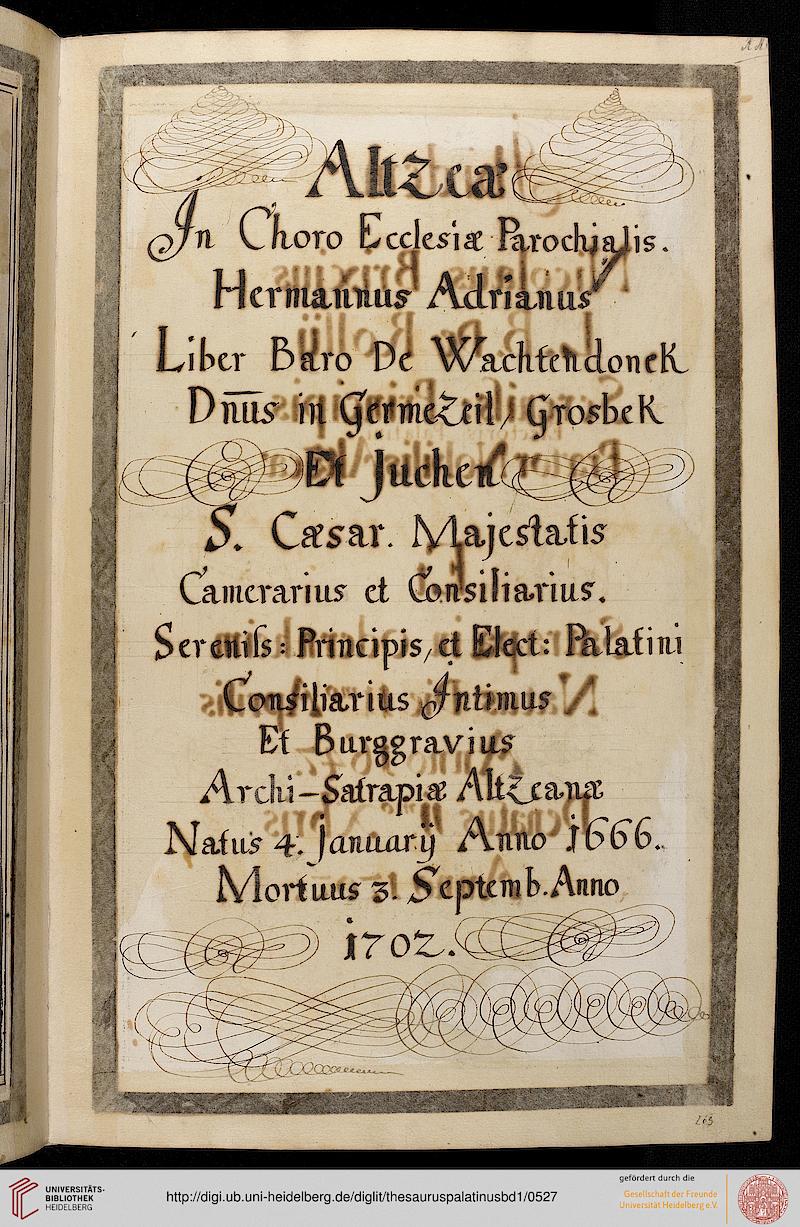 Altzeæ
In Choro Ecclesiæ Parochialis.
Hermannus Adrianus
Liber Baro De Wachtendonck
Dnūs in Germezeil, Grosbek
Et Juchen
S. Cæsar. Majestatis
Camerarius et Consiliarius.
Sereniſs: Principis, et Elect: Palatini
Consiliarius Intimus
Et Burggravius
Archi-Satrapiæ Altzeanæ
Natus 4. Januarÿ Anno 1666.
Mortuus 3. Septemb. Anno
1702.
263
UNIVERSITÄTS-
BIBLIOTHEK
HEIDELBERG
http://digi.ub.uni-heidelberg.de/diglit/thesauruspalatinusbd1/0527
gefördert durch die
Gesellschaft der Freunde
Universität Heidelberg e.V.